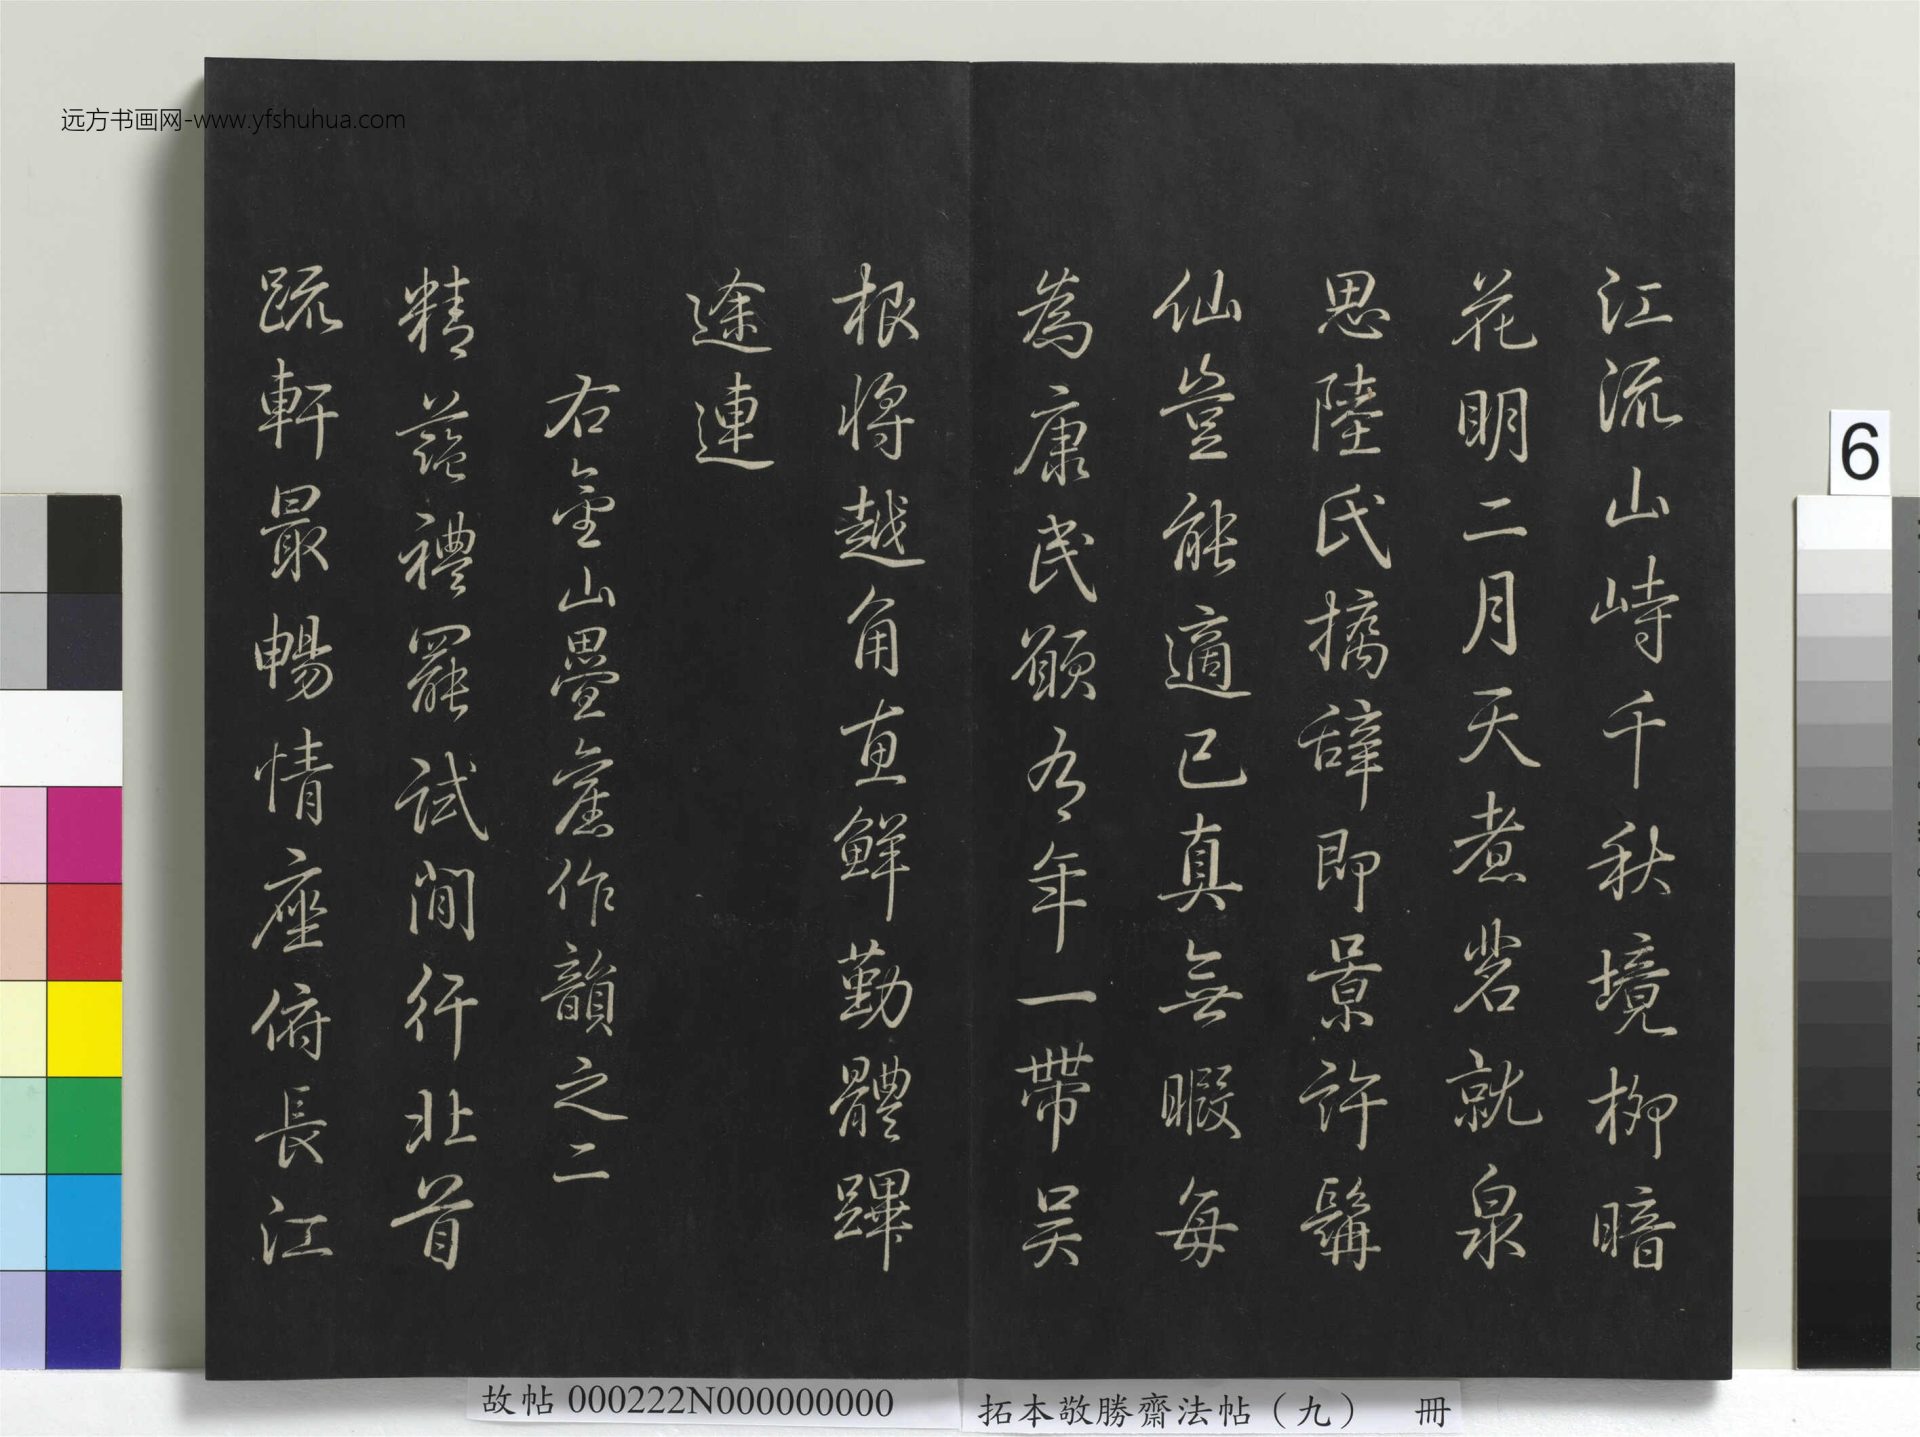 远方书画网-www.yfshuhua.com
江流山峙千秋境柳暗
花明二月天煮茗就泉
思陸氏摛辞即景許髯
仙豈能適已真無暇每
為康民願有年一帶吴
根將越角直鮮勤體踝
途連
右金山疊舊作韻之二
精藍禮罷試閒行北首
疏軒最暢情座俯長江
6
故帖 000222N000000000
拓本敬勝齋法帖（九） 冊